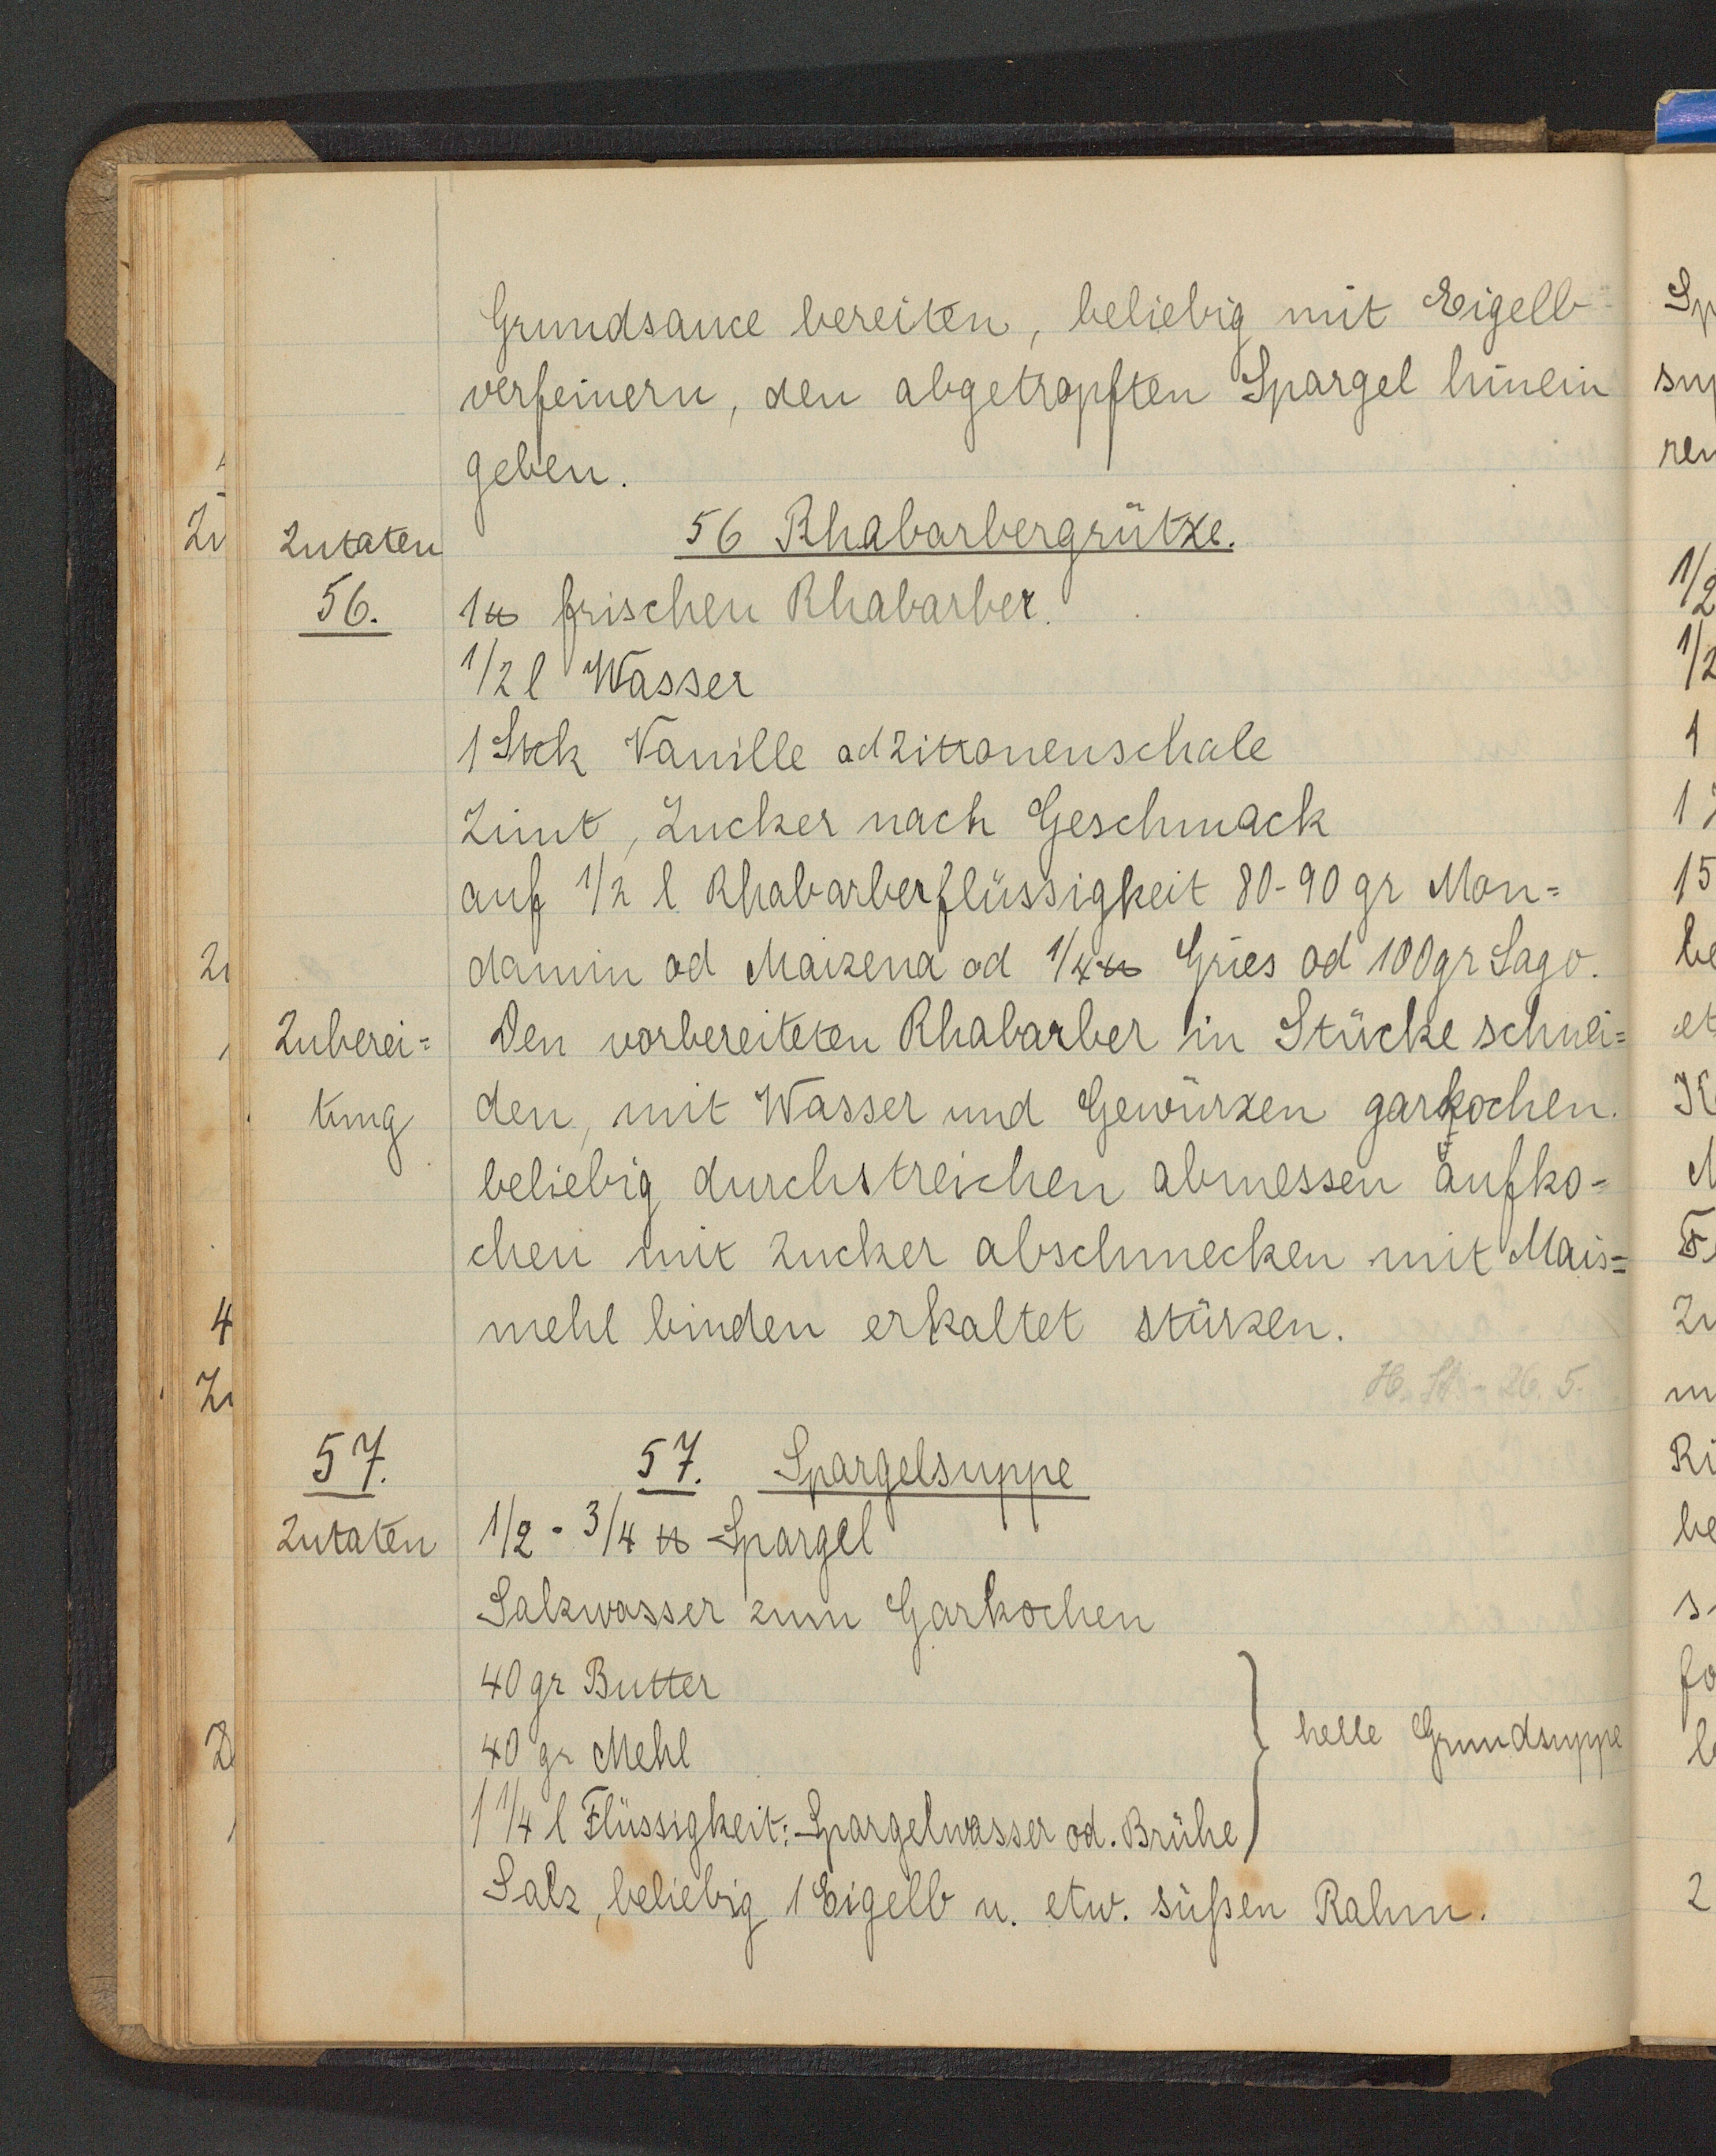 Grundsauce bereiten, beliebig mit Eigelb
verfeinern, den abgetropften Spargel hinein
geben.
Zutaten 56 Rhabarbergrütze.
56. 1 ℔ frischen Rhabarber.
1/2 l Wasser
1 Stck Vanille od Zitronenschale
Zimt, Zucker nach Geschmack
auf 1/2 l Rhabarberflüssigkeit 80-90 gr Mon=
damin od Maizena od 1/4 ℔ Gries od 100 gr Sago.
Zuberei= Den vorbereiteten Rhabarber in Stücke schnei=
tung den, mit Wasser und Gewürzen garkochen.
beliebig durchstreichen abmessen aufko=
chen mit Zucker abschmecken mit Mais=
mehl binden erkaltet stürzen.
H. St - 26. 5.
57. 57. Spargelsuppe
Zutaten 1/2 - 3/4 ℔ Spargel
Salzwasser zum Garkochen
40 gr Butter
40 gr Mehl } helle Grundsuppe
1 1/4 l Flüssigkeit: Spargelwasser od. Brühe
Salz, beliebig 1 Eigelb u. etw. süßen Rahm.